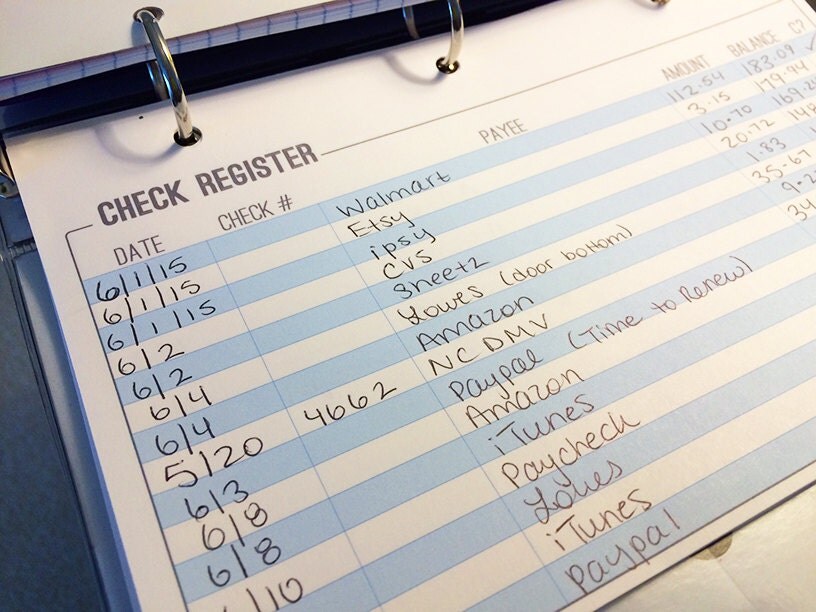 CHECK REGISTER
DATE CHECK # PAYEE AMOUNT BALANCE
6/1/15 Walmart 112.54 183.09
6/1/15 Etsy 3.15 179.94
6/1/15 ipsy 10.70 169.2
6/2 CVS 20.72 148
6/2 Sheetz 1.83 1
6/4 Lowes (door bottom) 35.67
6/4 Amazon 9.2
5/20 4662 NC DMV 34
6/3 Paypal (Time to Renew)
6/8 Amazon
6/8 iTunes
/10 Paycheck
Lowes
iTunes
paypal